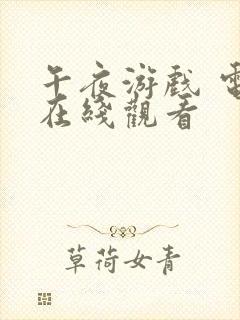 午夜游戏 電
在綫觀看
草荷女青